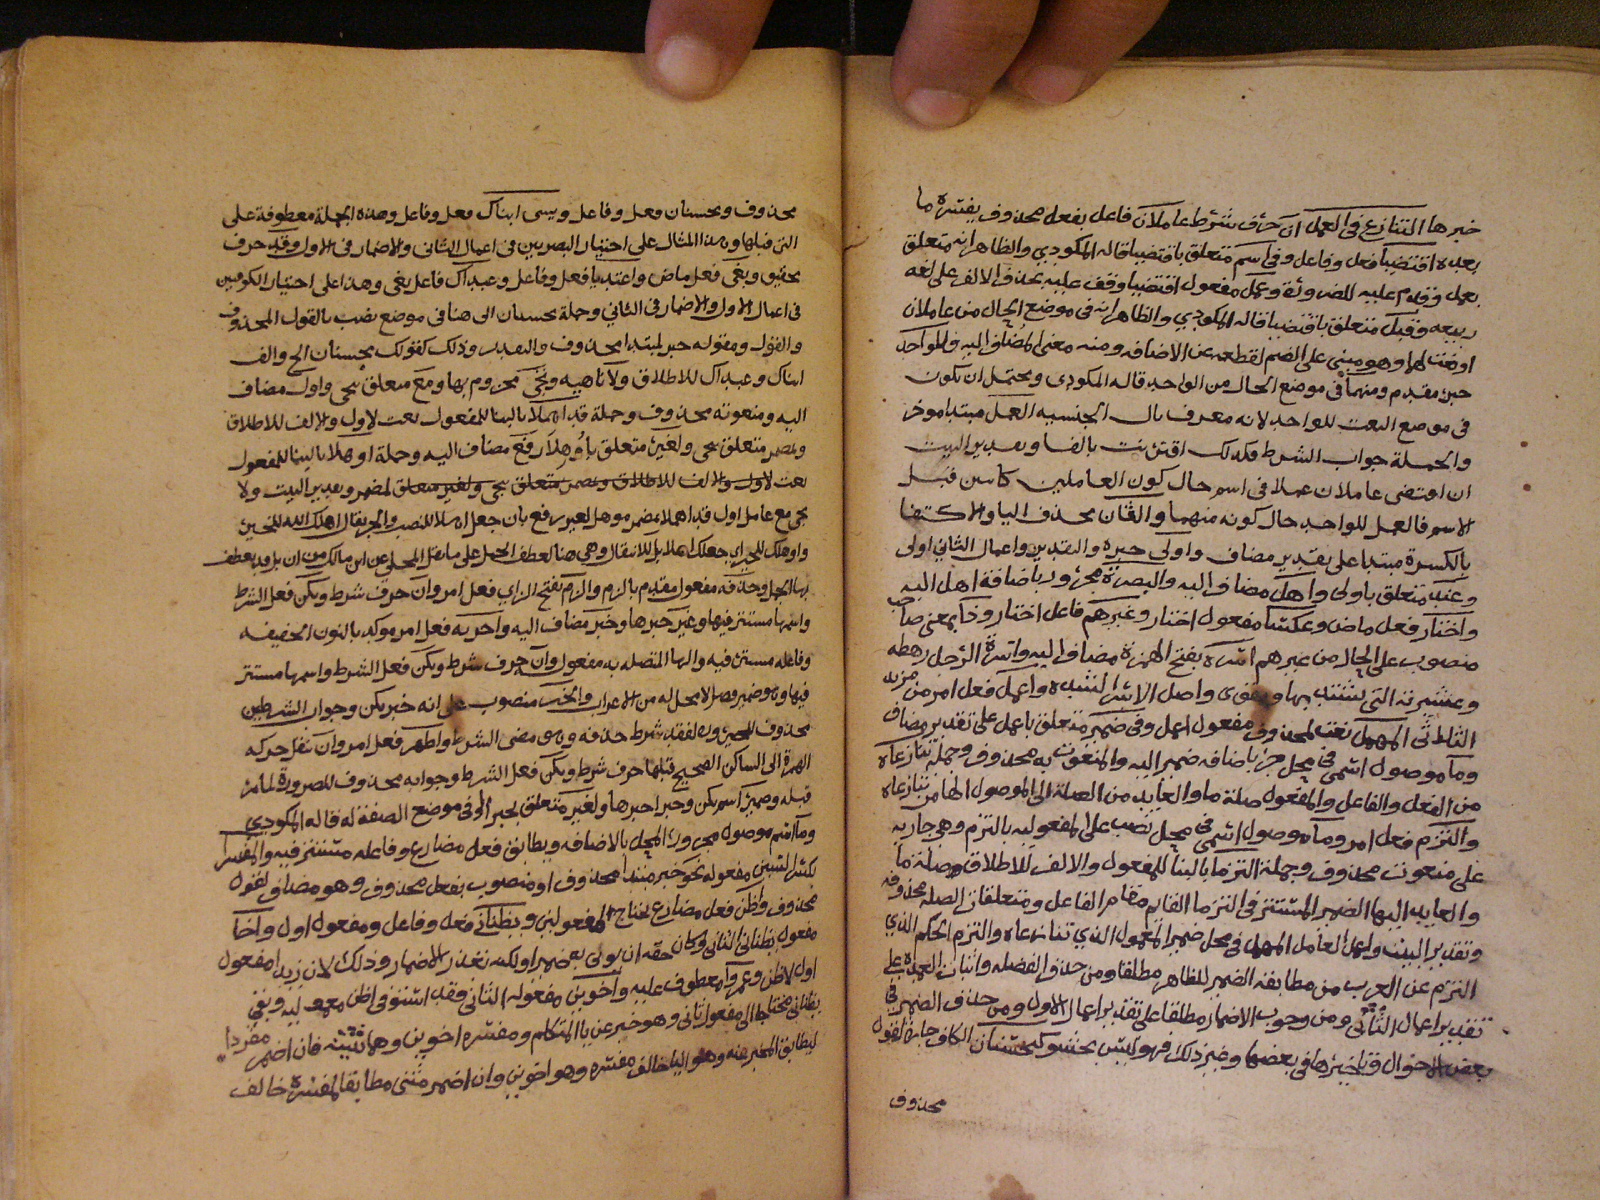 خبرها التنازع في العمل ان حرف شرط عاملان فاعل بفعل محذوف يفسره ما
بعده اقتضيا فعل وفاعل وفي اسم متعلق باقتضيا قاله المكودي والظاهر انه متعلق
بعمل وقدم عليه للضرورة وعمل مفعول اقتضيا وقف عليه بحذف الالف على لغة
ربيعه وقبل متعلق باقتضيا قاله المكودي والظاهر انه في موضع الحال من عاملان
او نعت لهما وهو مبني على الضم لقطعه عن الاضافه ومنه معنى المضاف اليه فللواحد
خبر مقدم ومنهما في موضع الحال من الواحد قاله المكودي ويحتمل ان يكون
في موضع النعت للواحد لانه معرف بال الجنسيه العمل مبتدا موخر
والجملة جواب الشرط فلذلك اقترنت بالفا وتقدير البيت
ان اقتضى عاملان عملا في اسم حال كون العاملين كائنين قبل
الاسم فالعمل للواحد حال كونه منهما والثان بحذف اليا والاكتفا
بالكسرة مبتدا على تقدير مضاف واولى خبره والتقدير واعمال الثاني اولى
وعند متعلق باولى واهل مضاف اليه والبصرة مجرور باضافة اهل اليه
واختار فعل ماض وعكسا مفعول اختار وغيرهم فاعل اختار وذا بمعنى صاحب
منصوب على الحال من غيرهم اسره بفتح الهمزة مضاف اليه واسرة الرجل رهطه
وعشيرته التي يشتد بها وصل الاسر الشده واعمل فعل امر من مزيد
الثلاثي المهمل نعت لمحذوف مفعول اعمل وفي ضمير متعلق باعمل على تقدير مضاف
وما موصول اسمي في محل جر باضافه ضمير اليه والمنعوت به محذوف وجملة تنازعاه
من الفعل والفاعل والمفعول صلة ما والعايد من الصلة الى الموصول الها من تنازعاه
والتزم فعل امر وما موصول اسمي في محل نصب على المفعوليه بالتزم وهي جاريه
على منعوت محذوف وجملة التزما بالبنا للمفعول والالف للاطلاق صلة ما
والعايد اليها الضمير المستتر في التزما القايم مقام الفاعل ومتعلقات الصله محذوفه
وتقدير البيت واعمل العامل المهمل في محل ضمير المعمول الذي تنازعاه والتزم الحكم الذي
التزم عن العرب من مطابقة الضمير للظاهر مطلقا ومن حذف الفضله واثبات العمدة على
تقدير اعمال الثاني ومن وجوب الاضمار مطلقا على تقدير اعمال الاول ومن حذف الضمير في
بعض الاحوال وتاخيرها في بعضها وغير ذلك فهو ليس بحشو كيحسنان الكاف جارة لقول
محذوف
محذوف ويحسنان فعل وفاعل ويسي ابناك فعل وفاعل وهذه الجملة معطوفة على
التي قبلها وهذا المثال على اختيار البصريين في اعمال الثاني والاضمار في الاول وقد حرف
تحقيق وبغى فعل ماض واعتديا فعل وفاعل وعبداك فاعل بغى وهذا على اختيار الكوفيين
في اعمال الاول والاضمار في الثاني وجملة يحسنان الى هنا في موضع نصب بالقول المحذوف
والقول ومقوله خبر لمبتدا محذوف والتقدير وذلك كقولك يحسنان الخ والف
ابناك وعبداك للاطلاق ولا ناهيه وتجي مجزوم بها ومع متعلق بتجي واول مضاف
اليه ومنعوته محذوف وجملة قد اهملا بالبنا للمفعول نعت لاول والالف للاطلاق
وبمضمر متعلق بتجي ولغير متعلق باوهلا رفع مضاف اليه وجملة اوهلا بالبنا للمفعول
نعت لاول والالف للاطلاق وبمضمر متعلق بتجي ولغير متعلق لمضمر وتقدير البيت ولا
تجي مع عامل اول قد اهملا بمضمر موهل لغير رفع بان جعل اهلا للنصب والجر يقال اهلك الله للخير
واوهلك للخير اي جعلك اهلا بل للانتقال وهي هنا لعطف الجمل على ما نقل المحلي عن ابن مالك من ان بل قد يعطف
بها الجمل وحذفه مفعول مقدم بالزم والزم بفتح الزاي فعل امر وان حرف شرط ويكن فعل الشرط
واسمها مستتر فيها وغير خبرها وخبر مضاف اليه واخرنه فعل امر موكد بالنون الخفيفه
وفاعله مستتر فيه والها المتصله به مفعول وان حرف شرط ويكن فعل الشرط واسمها مستتر
فيها وهو ضمير فصل لا محل له من الاعراب والخبر منصوب على انه خبر يكن وجواب الشرطين
محذوف للضرورة لفقد شرط حذفه وهو مضى الشرط واظهر فعل امر وان بنقل حركه
الهمزة الى الساكن الصحيح قبلها حرف شرط ويكن فعل الشرط وجوابه محذوف للضرورة لما مر
قبله وضمير اسم يكن وخبرا خبرها ولغير متعلق بخبر او في موضع الصفة له قاله المكودي
وما اسم موصول مجرور المحل بالاضافه ويطابق فعل مضارع وفاعله مستتر فيه والمفسرا
بكسر السين مفعوله نحو خبر مبتدا محذوف او منصوب بفعل محذوف وهو مضاف لقول
محذوف واظن فعل مضارع يحتاج لمفعولين ويظناني فعل وفاعل ومفعول اول واخا
مفعول يظناني الثاني وكان حقه ان يوتى به ضميرا ولكنه تعذر الاضمار وذلك لان زيدا مفعول
اول لاظن وعمرا معطوف عليه واخوين مفعوله الثاني وقد استوفى اظن مفعوليه وبقي
يظناني محتاجا الى مفعول ثاني وهو خبر عن يا المتكلم ومفسره اخوين وهما تثنيته فان اضمر مفردا
ليطابق المخبر عنه وهو اليا خالف مفسره وهو اخوين وان اضمر مثنى مطابقا لمفسره خالف